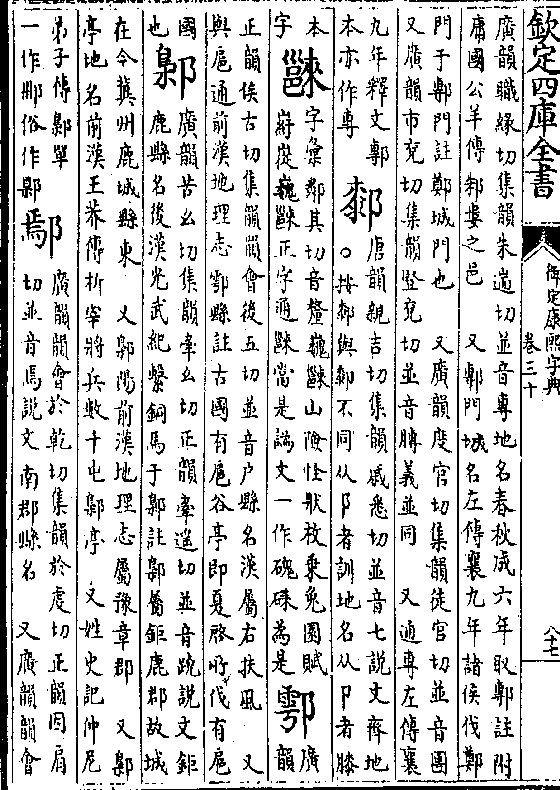 欽定四庫全書
御定康熙字典
卷三十
廣韻職緣切集韻朱遄切並音專地名春秋成六年取鄟註附
庸國公羊傳邾婁之邑　又鄟門城名左傳襄九年諸侯伐鄭
門于鄟門註鄭城門也　又廣韻度官切集韻徒官切並音團
又廣韻市兗切集韻豎兗切並音膞義並同　又通專左傳襄
九年釋文鄟
本亦作專
鄹唐韻親吉切集韻戚悉切並音七說文齊地
○按鄹與郀不同从阝者訓地名从卩者膝
本
字
字彙鄰其切音釐巍山險怪狀枚乗兔園賦
崣巍正字通當是譌文一作磈磥為是
鄠廣韻
正韻侯古切集韻韻會後五切並音户縣名漢屬右扶風　又
與扈通前漢地理志鄠縣註古國有扈谷亭即夏啓所伐有扈
國
也
鄡廣韻苦幺切集韻牽幺切正韻牽遥切並音蹺說文鉅
鹿縣名後漢光武紀擊銅馬于鄡註鄡屬鉅鹿郡故城
在今冀州鹿城縣東　又鄡陽前漢地理志屬豫章郡　又鄡
亭地名前漢王莽傳析宰將兵數千屯鄡亭　又姓史記仲尼
弟子傳鄡單
一作䣕俗作鄥
鄢廣韻韻會於乾切集韻於虔切正韻因肩
切並音焉說文南郡縣名　又廣韻韻會